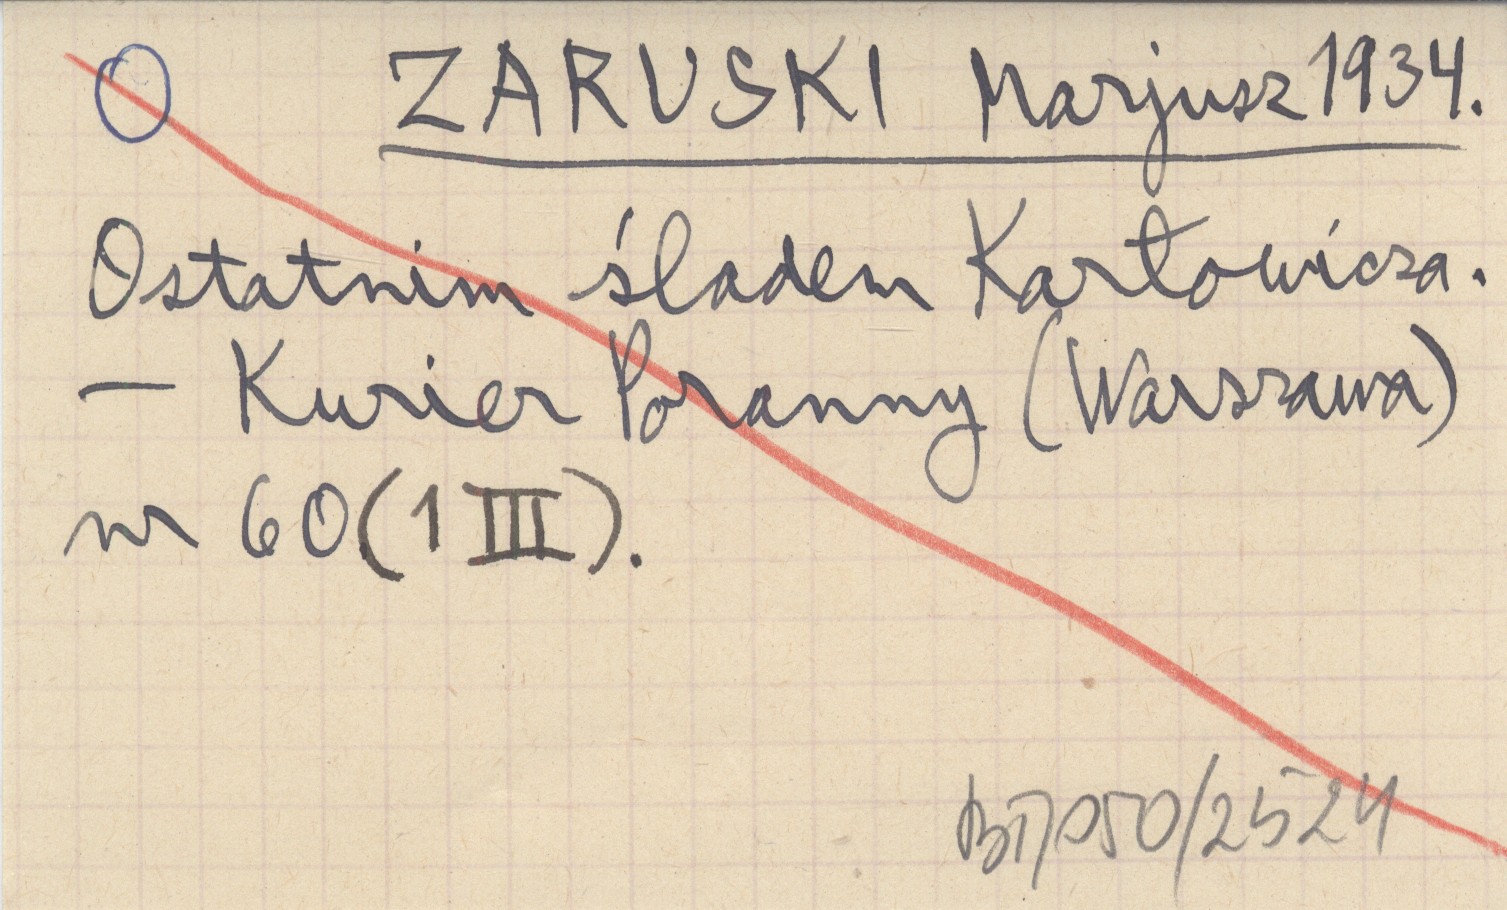 O ZARUSKI Marjusz 1934.
Ostatnim śladem Karłowicza.
— Kurier Poranny (Warszawa)
nr 60 (1 III).
BT/050/2524